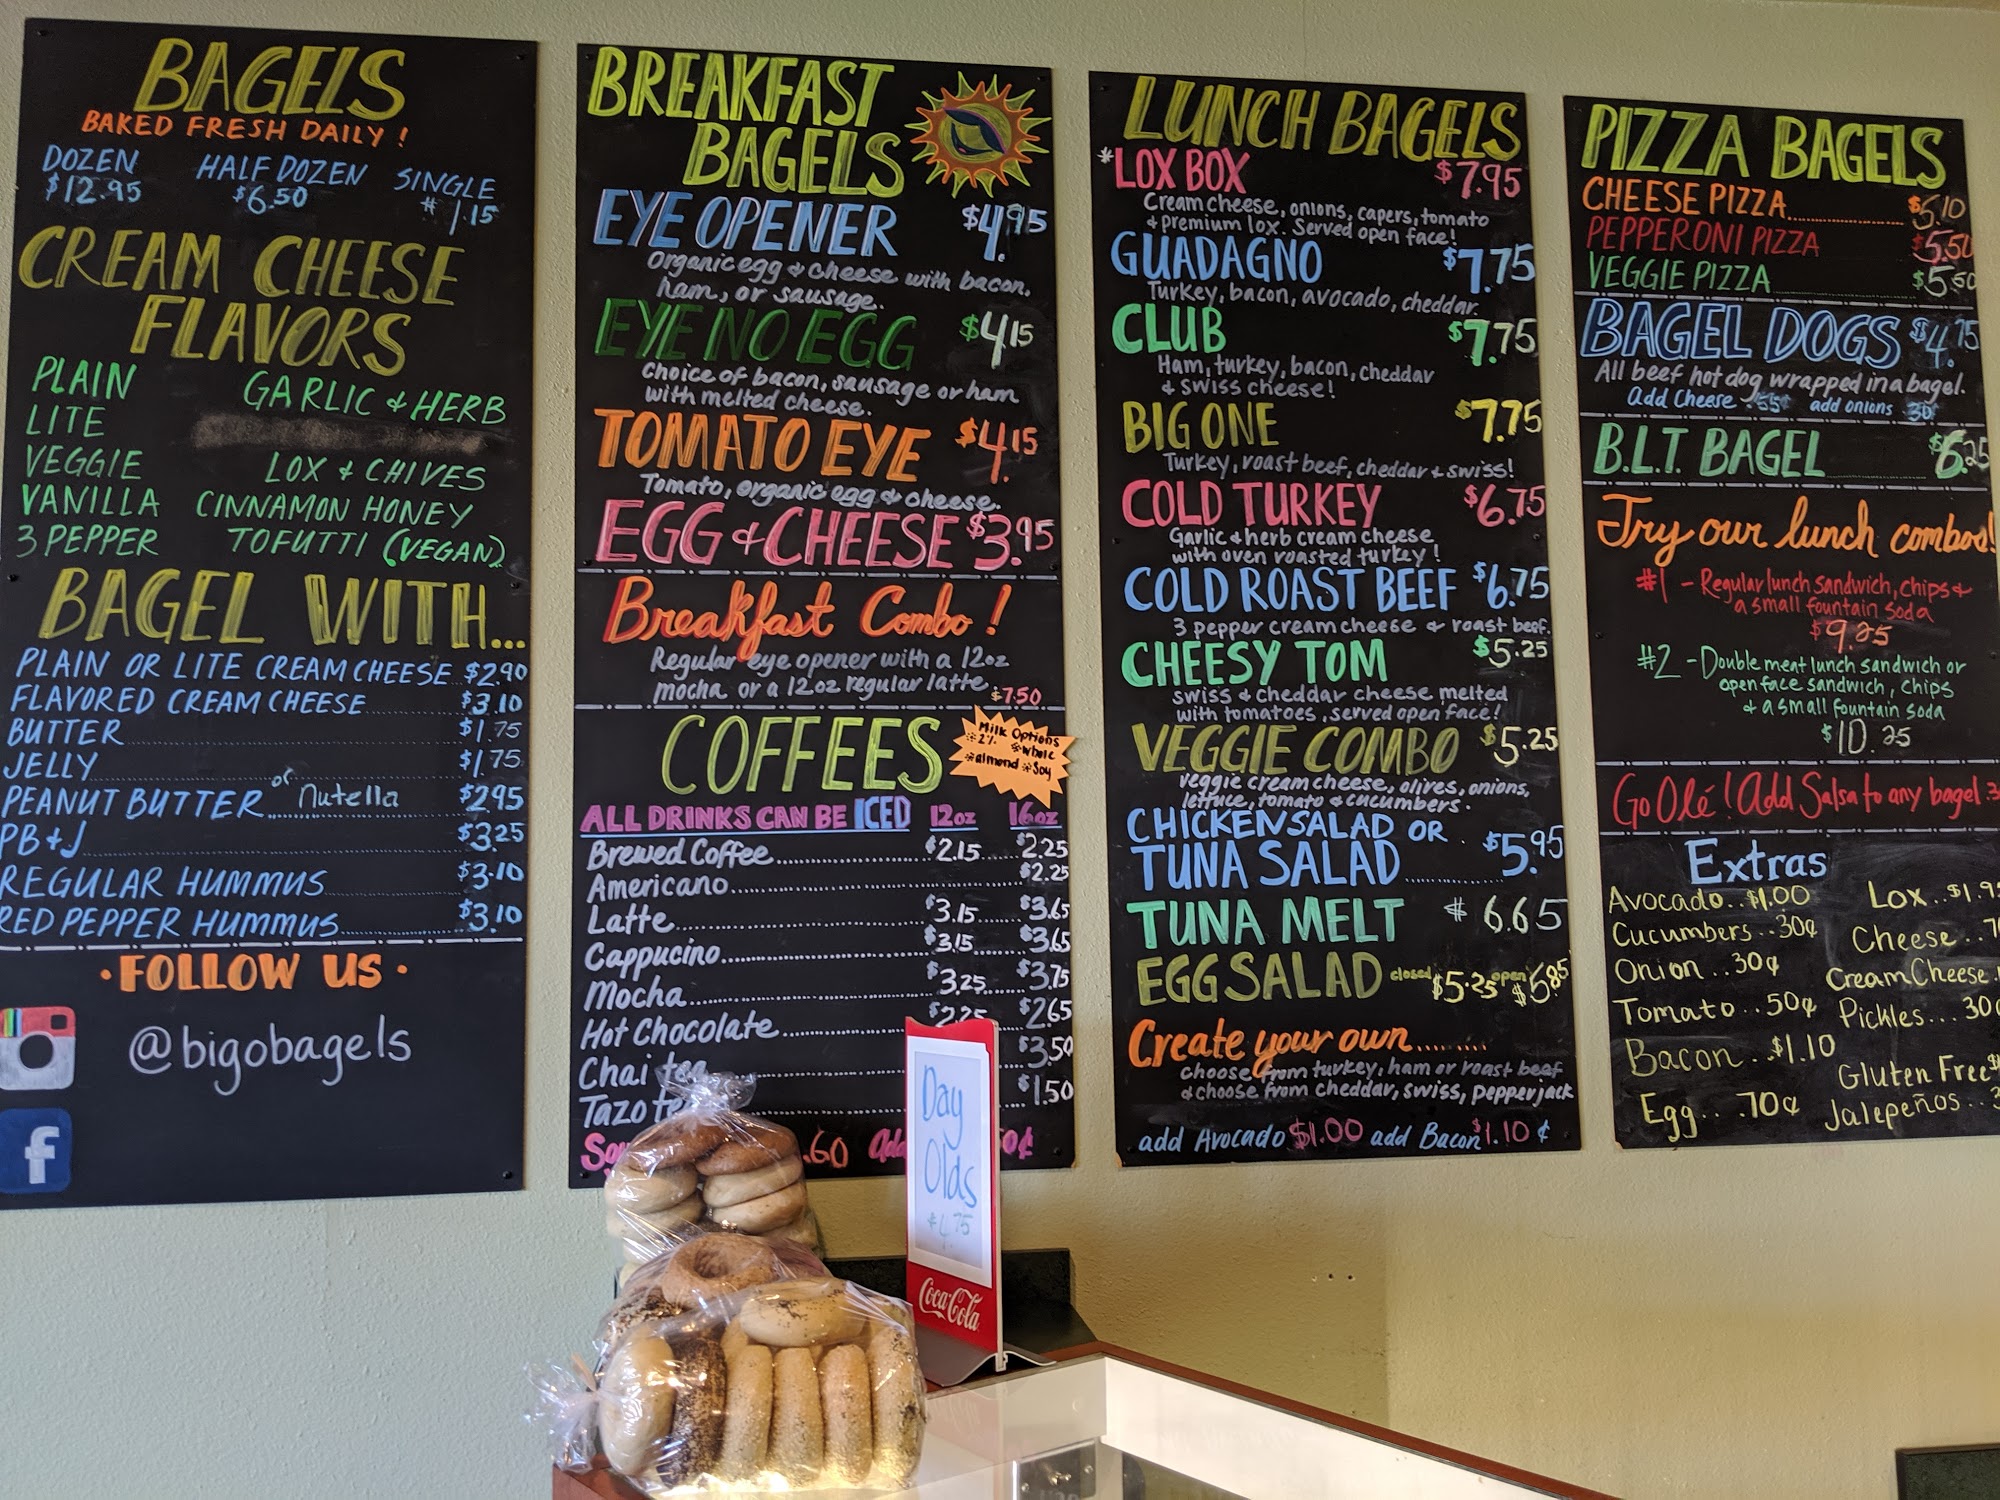 BAGELS
BAKED FRESH DAILY!
DOZEN HALF DOZEN SINGLE
$12.95 $6.50 $1.15
CREAM CHEESE
FLAVORS
PLAIN GARLIC & HERB
LITE
VEGGIE LOX & CHIVES
VANILLA CINNAMON HONEY
3 PEPPER TOFUTTI (VEGAN)
BAGEL WITH...
PLAIN OR LITE CREAM CHEESE $2.90
FLAVORED CREAM CHEESE $3.10
BUTTER $1.75
JELLY $1.75
PEANUT BUTTER or nutella $2.95
PB & J $3.25
REGULAR HUMMUS $3.10
RED PEPPER HUMMUS $3.10
• FOLLOW US •
@bigobagels
f
BREAKFAST
BAGELS
EYE OPENER $4.95
Organic egg & cheese with bacon,
ham, or sausage.
EYE NO EGG $4.15
Choice of bacon, sausage or ham
with melted cheese.
TOMATO EYE $4.15
Tomato, organic egg & cheese.
EGG & CHEESE $3.95
Breakfast Combo!
Regular eye opener with a 12oz
mocha or a 12oz regular latte. $7.50
COFFEES
Milk Options
*2% *whole
*almond *Soy
ALL DRINKS CAN BE ICED 12oz 16oz
Brewed Coffee $2.15 $2.25
Americano $2.25
Latte $3.15 $3.65
Cappucino $3.15 $3.65
Mocha $3.25 $3.75
Hot Chocolate $2.25 $2.65
Chai tea $3.50
Tazo te $1.50
.60 Add
LUNCH BAGELS
*LOX BOX $7.95
Cream cheese, onions, capers, tomato
& premium lox. Served open face!
GUADAGNO $7.75
Turkey, bacon, avocado, cheddar.
CLUB $7.75
Ham, turkey, bacon, cheddar
& swiss cheese!
BIG ONE $7.75
Turkey, roast beef, cheddar & swiss!
COLD TURKEY $6.75
Garlic & herb cream cheese
with oven roasted turkey!
COLD ROAST BEEF $6.75
3 pepper cream cheese & roast beef.
CHEESY TOM $5.25
swiss & cheddar cheese melted
with tomatoes, served open face!
VEGGIE COMBO $5.25
veggie cream cheese, olives, onions,
lettuce, tomato & cucumbers.
CHICKEN SALAD OR
TUNA SALAD $5.95
TUNA MELT $6.65
EGG SALAD closed $5.25 open $5.85
Create your own........
choose from turkey, ham or roast beef
& choose from cheddar, swiss, pepperjack
add Avocado $1.00 add Bacon $1.10 ¢
PIZZA BAGELS
CHEESE PIZZA $5.10
PEPPERONI PIZZA $5.50
VEGGIE PIZZA $5.50
BAGEL DOGS $4.75
All beef hot dog wrapped in a bagel.
add Cheese .55¢ add onions .30¢
B.L.T. BAGEL $6.25
Try our lunch combos!
#1 - Regular lunch sandwich, chips &
a small fountain soda
$9.25
#2 - Double meat lunch sandwich or
open face sandwich, chips
& a small fountain soda
$10.25
Go Olé! Add Salsa to any bagel
Extras
Avocado..$1.00 Lox..$1.95
Cucumbers..30¢ Cheese..
Onion..30¢ Cream Cheese
Tomato..50¢ Pickles...30¢
Bacon..$1.10 Gluten Free
Egg...70¢ Jalepeños..
Day
Olds
$4.75
Coca-Cola